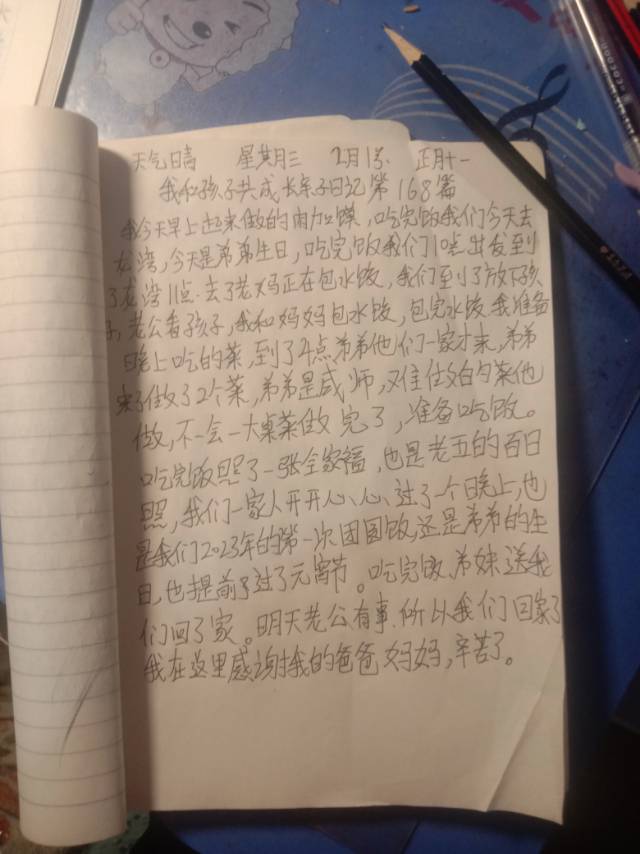 天气晴 星期三 2月1号 正月十一
我和孩子共成长车子日记第168篇
我今天早上起来做的肉加馍,吃完饭我们今天去
龙湾,今天是弟弟生日,吃完饭我们10点出发到
了龙湾11点.去了老妈正在包水饺,我们到了放下孩
子,老公看孩子,我和妈妈包水饺,包完水饺我准备
晚上吃的菜,到了4点弟弟他们一家才来,弟弟
来了做了2个菜,弟弟是师,又佳佳的菜他
做,不一会一大桌菜做完了,准备吃饭。
吃完饭照了一张全家福,也是老五的百日
照,我们一家人开开心、心、过了一个晚上,也
是我们2023年的第一次团圆饭,还是弟弟的生
日,也提前了过了元宵节。吃完饭.弟妹送我
们回了家。明天老公有事.所以我们回家了
我在这里感谢我的爸爸妈妈,辛苦了。